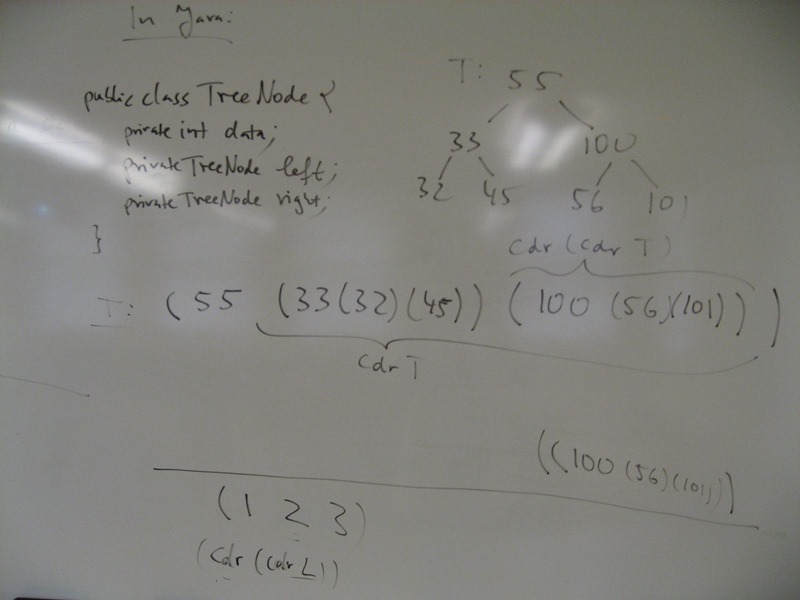 In Java:
public class TreeNode {
private int data;
private TreeNode left;
private TreeNode right;
}
T: 55
33 100
32 45 56 101
cdr (cdr T)
T: (55 (33(32)(45)) (100 (56)(101)))
cdr T
((100 (56)(101)))
(1 2 3)
(cdr (cdr L))